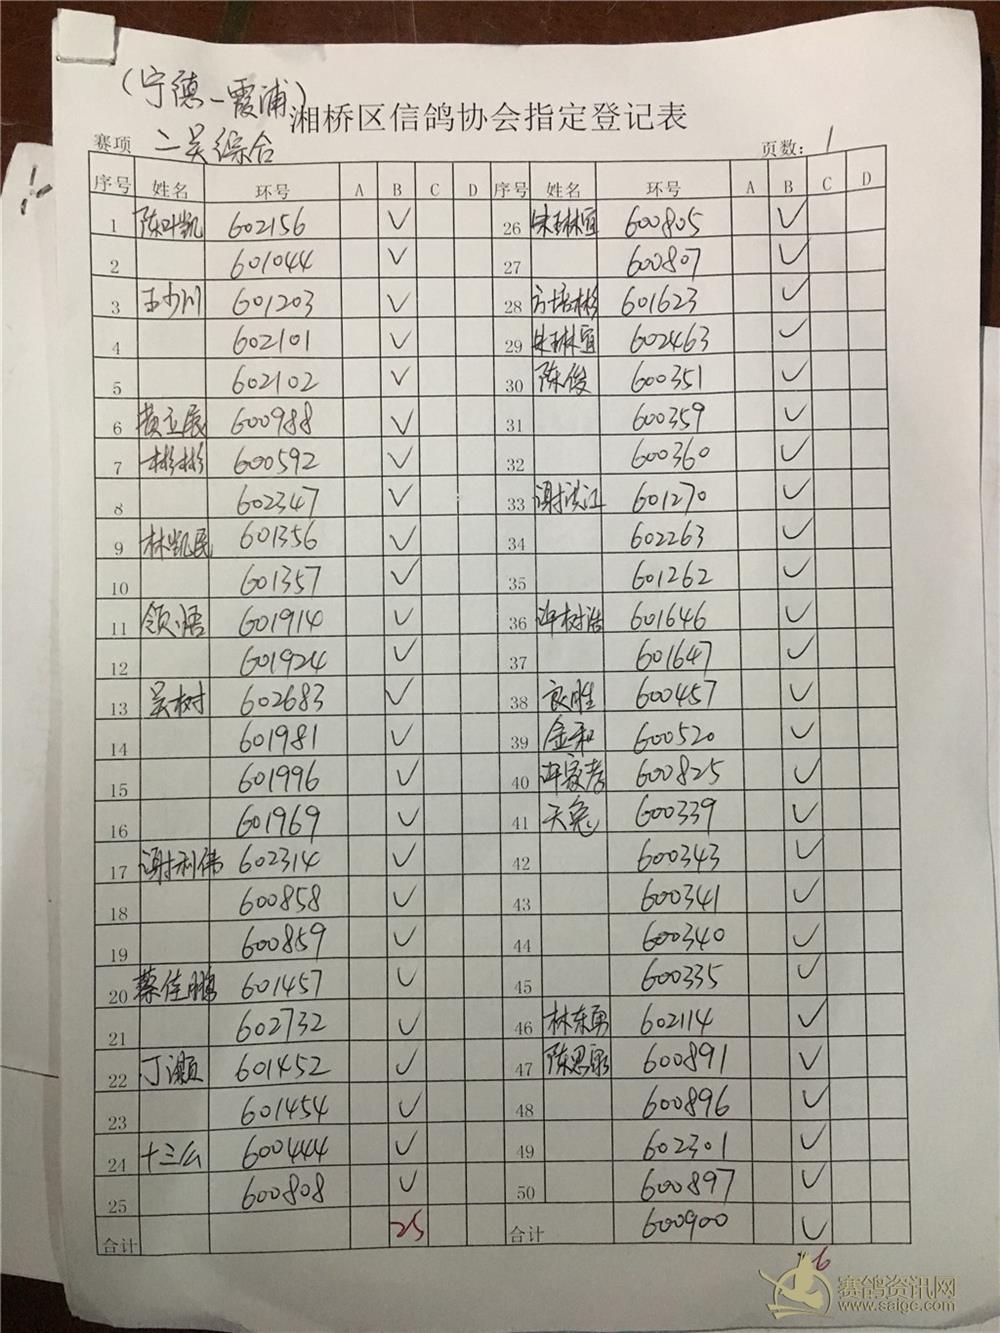 (宁德—霞浦)
湘桥区信鸽协会指定登记表
赛项 二关综合 页数: 1
序号 姓名 环号 A B C D 序号 姓名 环号 A B C D
1 陈叶凯 602156 ✓ 26 朱琳宜 600805 ✓
2 601044 ✓ 27 600807 ✓
3 王少川 601203 ✓ 28 方培彬 601623 ✓
4 602101 ✓ 29 朱琳宜 602463 ✓
5 602102 ✓ 30 陈俊 600351 ✓
6 黄立展 600988 ✓ 31 600359 ✓
7 彬彬 600592 ✓ 32 600360 ✓
8 602347 ✓ 33 谢洪江 601270 ✓
9 林凯民 601356 ✓ 34 602263 ✓
10 601357 ✓ 35 601262 ✓
11 领悟 601914 ✓ 36 许树浩 601646 ✓
12 601924 ✓ 37 601647 ✓
13 吴树 602683 ✓ 38 良胜 600457 ✓
14 601981 ✓ 39 金和 600520 ✓
15 601996 ✓ 40 许家孝 600825 ✓
16 601969 ✓ 41 天兔 600339 ✓
17 谢利伟 602314 ✓ 42 600343 ✓
18 600858 ✓ 43 600341 ✓
19 600859 ✓ 44 600340 ✓
20 蔡佳鹏 601457 ✓ 45 600335 ✓
21 602732 ✓ 46 林东勇 602114 ✓
22 丁灏 601452 ✓ 47 陈思泉 600891 ✓
23 601454 ✓ 48 600896 ✓
24 十三公 600444 ✓ 49 602301 ✓
25 600808 ✓ 50 600897 ✓
合计 25 合计 600900 ✓
6
赛鸽资讯网
www.saigc.com